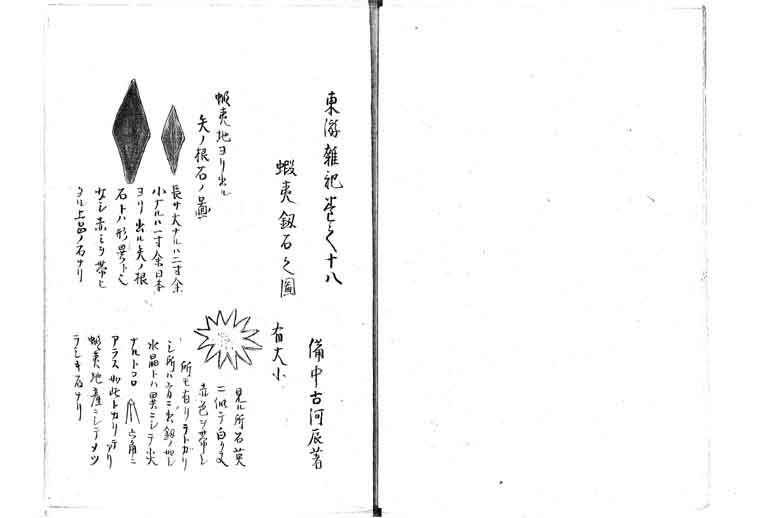 東游雑記巻之十八
備中古河辰著
蝦夷釼石之圖
有大小
見ル所石英
ニ似テ白ク又
赤色ヲ帯シ
所モ有リトガリ
シ所ハ六角ニ〆釼ノ如シ
水晶トハ異ニシテ尖
ナルトコロ 六角ニ
アラス如此トカリ
蝦夷地産ニシテメツ
ラシキ石ナリ
蝦夷地ヨリ出ル
矢ノ根石ノ圖
長サ大ナルハ二寸余
小ナルハ一寸余日本
ヨリ出ル矢ノ根
石トハ形異ナリ
少シ赤ミヲ帯シ
タル上品ノ石ナリ